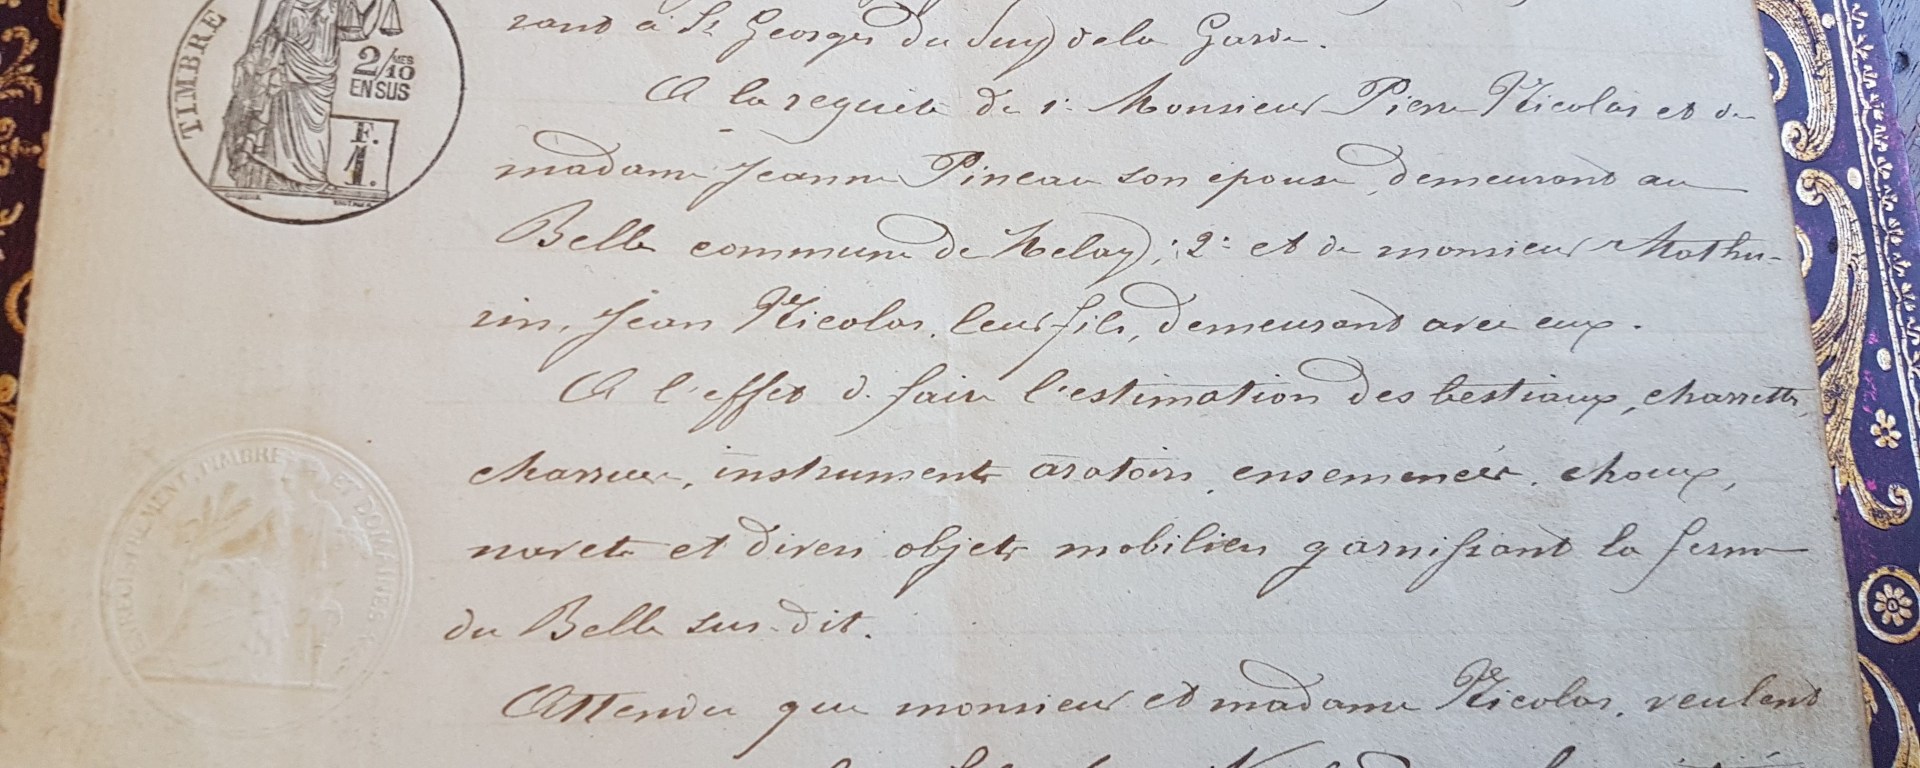 TIMBRE
2/10 MES
EN SUS
F.
1.
rant à St Georges du Puy de la Garde.
A la requête de 1° Monsieur Pierre Nicolas et de
madame Jeanne Pineau son épouse, demeurant au
Belle commune de Melay; 2° et de monsieur Mathu-
rin, Jean Nicolas, leur fils, demeurant avec eux.
A l'effet de faire l'estimation des bestiaux, charrette,
charrue, instruments aratoirs, ensemencés, choux,
navets et divers objets mobiliers garnissant la ferme
du Belle sus-dit.
Attendu que monsieur et madame Nicolas, veulent
ENREGISTREMENT, TIMBRE ET DOMAINES